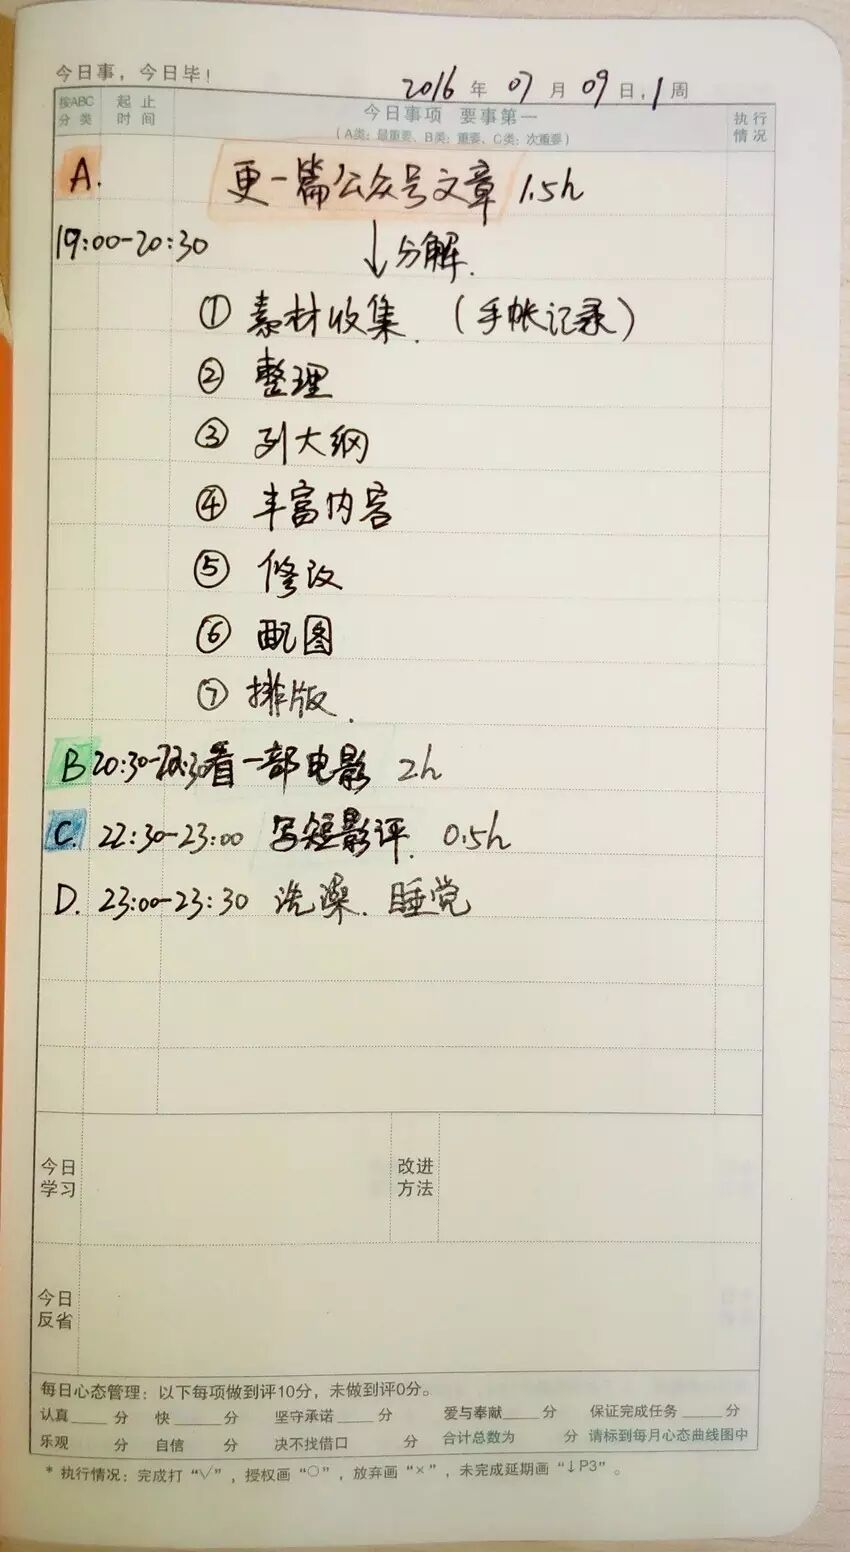 今日事，今日毕！
2016年07月09日，1周
按ABC分类 起止时间 今日事项 要事第一 执行情况
（A类：最重要、B类：重要、C类：次重要）
A. 更一篇公众号文章 1.5h
19:00-20:30 ↓分解.
① 素材收集.（手帐记录）
② 整理
③ 列大纲
④ 丰富内容
⑤ 修改
⑥ 配图
⑦ 排版.
B 20:30-22:30 看一部电影 2h
C. 22:30-23:00 写短影评. 0.5h
D. 23:00-23:30 洗澡. 睡觉
今日学习 改进方法
今日反省
每日心态管理：以下每项做到评10分，未做到评0分。
认真____分 快____分 坚守承诺____分 爱与奉献____分 保证完成任务____分
乐观 分 自信 分 决不找借口 分 合计总数为 分 请标到每月心态曲线图中
* 执行情况：完成打“√”，授权画“○”，放弃画“×”，未完成延期画“↓P3”。